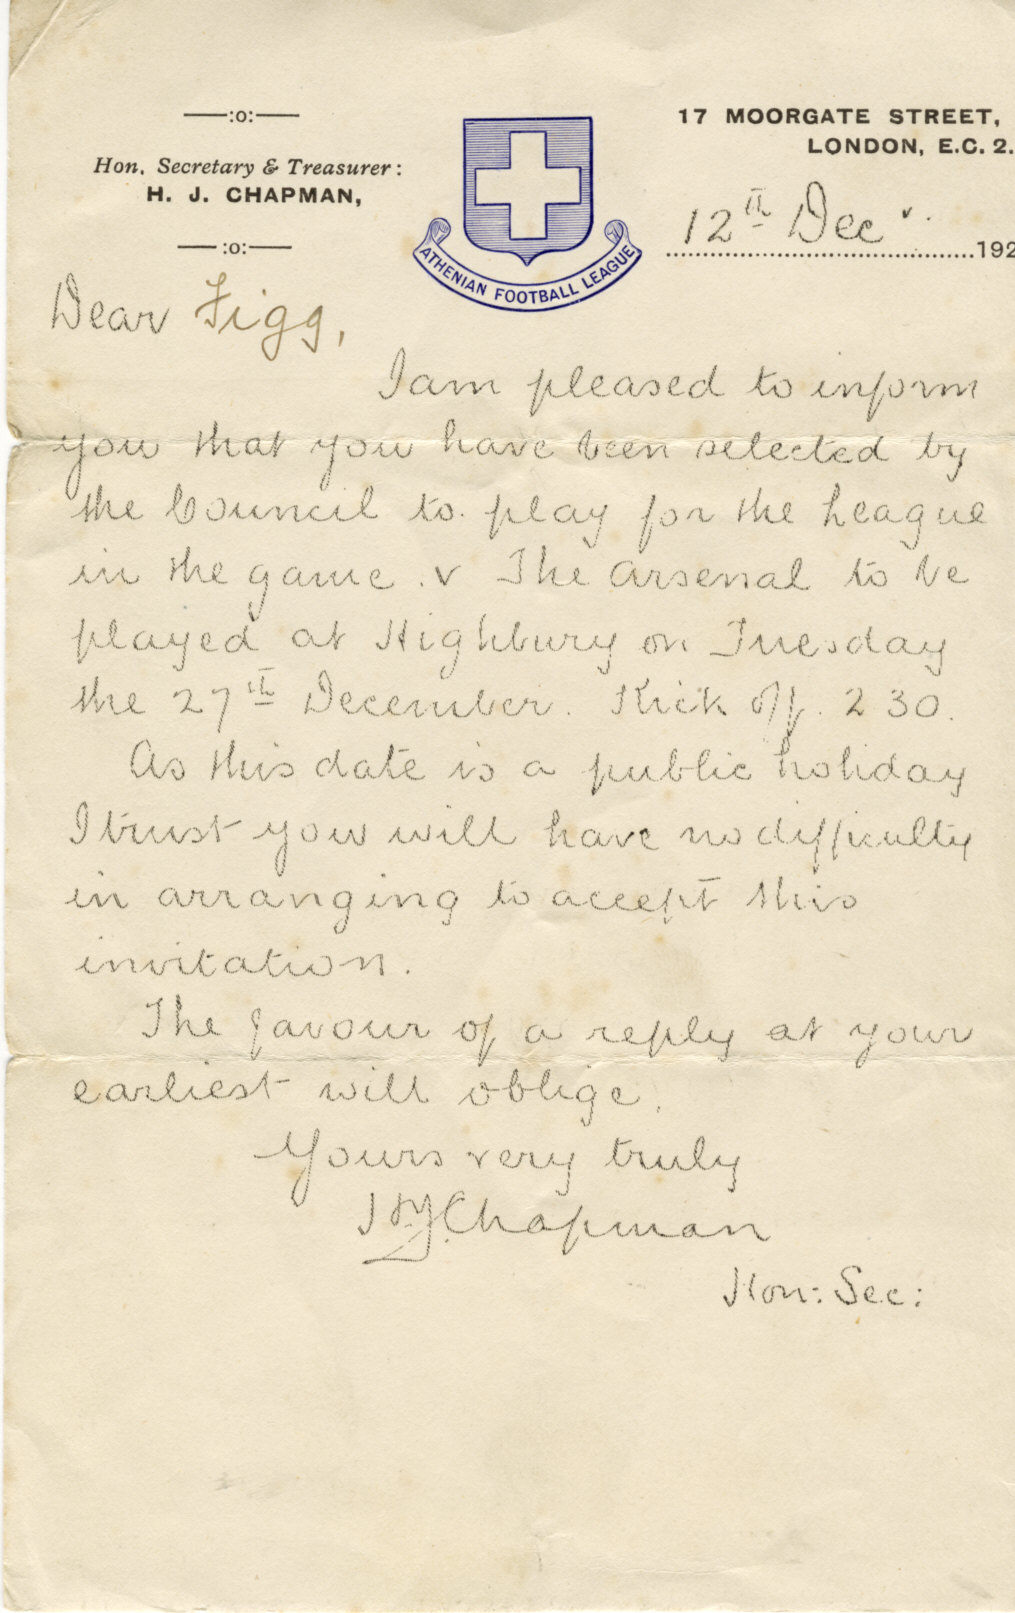 —:o:—
Hon. Secretary & Treasurer:
H. J. CHAPMAN,
—:o:—
ATHENIAN FOOTBALL LEAGUE
17 MOORGATE STREET,
LONDON, E.C. 2.
12th Dec. 192
Dear Figg,
I am pleased to inform
you that you have been selected by
the Council to play for the League
in the game .v The Arsenal to be
played at Highbury on Tuesday
the 27th December. Kick off. 2 30.
As this date is a public holiday
I trust you will have no difficulty
in arranging to accept this
invitation.
The favour of a reply at your
earliest will oblige.
Yours very truly
H J. Chapman
Hon: Sec: